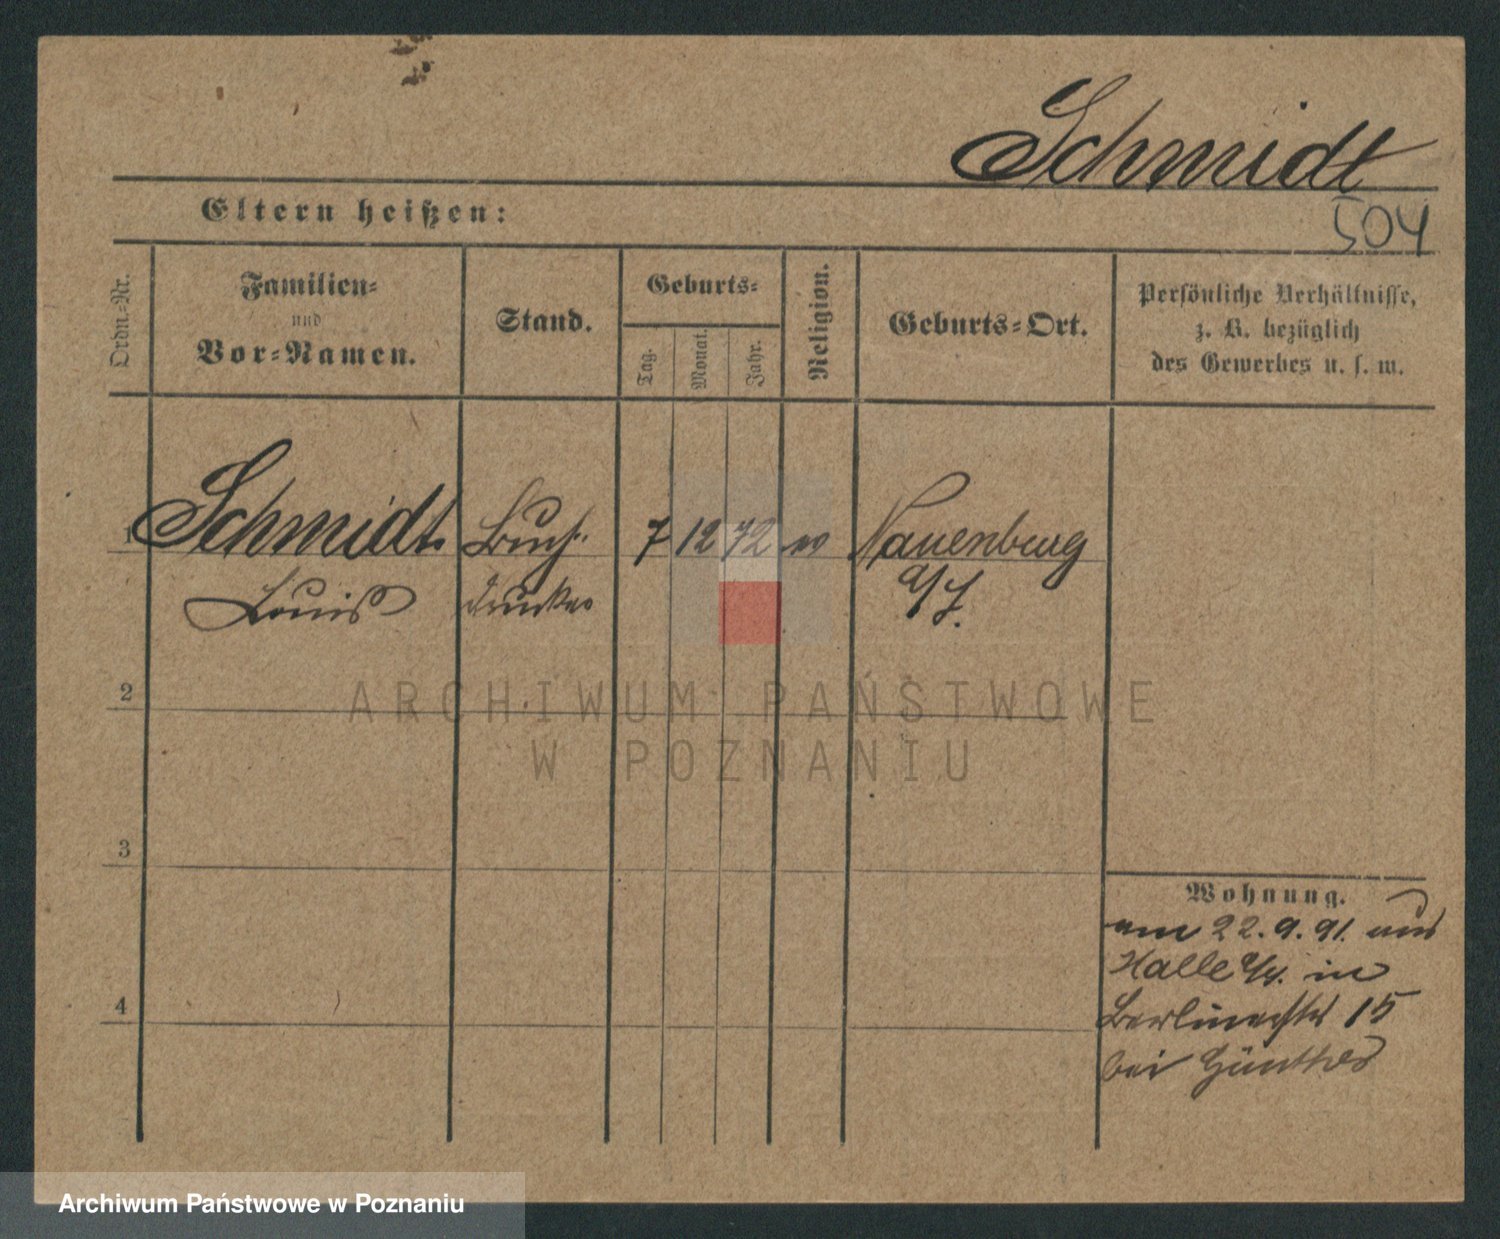 Schmidt
504
Eltern heißen:
Ordn.-Nr.
Familien-
und
Vor-Namen.
Stand.
Geburts-
Tag.
Monat.
Jahr.
Religion.
Geburts-Ort.
Persönliche Verhältnisse,
z. B. bezüglich
des Gewerbes u. s. w.
1 Schmidt Buch- 7 12 72 Nauenburg
Louis drucker
2
3
4
Wohnung.
am 22.9.91. aus
Halle a/S. in
Berlinerstr 15
bei Günther
ARCHIWUM PAŃSTWOWE
W POZNANIU
Archiwum Państwowe w Poznaniu